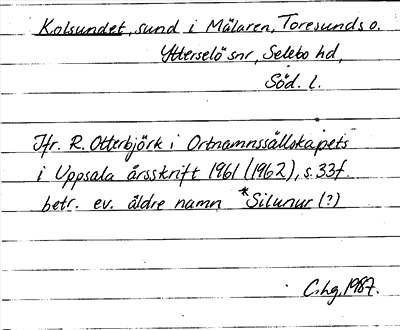 Kolsundet, sund i Mälaren, Toresunds o.
Ytterselö snr, Selebo hd,
Söd. l.
Jfr. R. Otterbjörk i Ortnamnssällskapets
i Uppsala årsskrift 1961 (1962), s. 33f
betr. ev. äldre namn *Silunur (?)
C.hg. 1987.